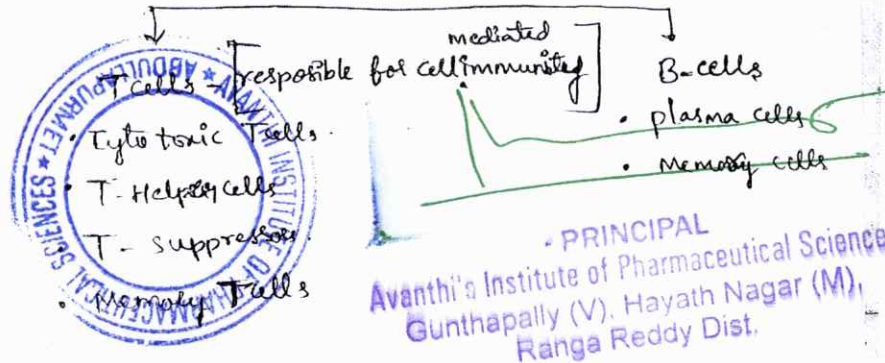 T cells - [responsible for cell mediated immunity]
• Cyto toxic T cells.
• T-Helper cells
• T-suppressor
• Memory T cells
B-cells
• plasma cells
• Memory cells
AVANTHI INSTITUTE OF PHARMACEUTICAL SCIENCES ★ ABDULLAPURMET ★
PRINCIPAL
Avanthi's Institute of Pharmaceutical Science
Gunthapally (V), Hayath Nagar (M),
Ranga Reddy Dist.